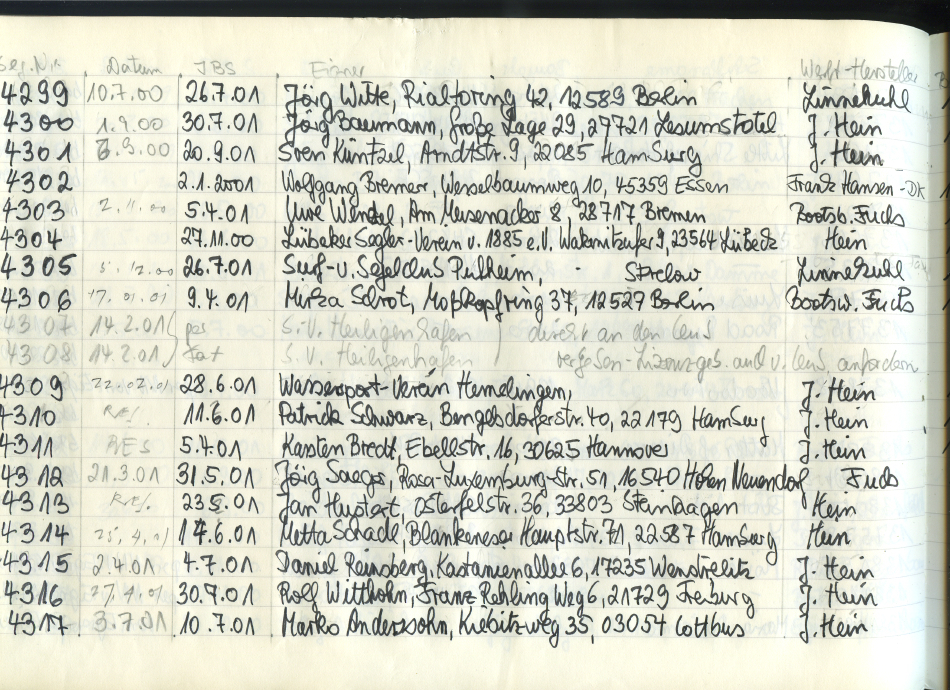 Seg.Nr. Datum JBS Eigner Werft-Hersteller
4299 10.7.00 26.7.01 Jörg Witte, Rialtoring 42, 12589 Berlin Linnekuhl
4300 1.9.00 30.7.01 Jörg Baumann, Große Lage 29, 27721 J. Hein
4301 6.9.00 20.9.01 Sven Küntzel, Arndtstr. 9, 22085 Hamburg J. Hein
4302 2.1.2001 Wolfgang Bremer, Weselbaumweg 10, 45359 Essen Frank Hansen-DK
4303 2.11.00 5.4.01 Uwe Wenzel, Am Meisenacker 8, 28717 Bremen Bootsb. Fuchs
4304 27.11.00 Lübecker Segler-Verein v. 1885 e.V. Wakenitzufer 9, 23564 Lübeck Hein
4305 5.12.00 26.7.01 Surf-u. Segelclub Pulheim, - Strelow Linnekuhl
4306 17.01.01 9.4.01 Mirza Schrot, Moßkopfring 37, 12527 Berlin Bootsw. Fuchs
4307 14.2.01 S.V. Heiligenhafen direkt an den
4308 14.2.01 S.V. Heiligenhafen vergeben-Lizenzgeb. und v. anfordern
4309 22.02.01 28.6.01 Wassersport-Verein Hemelingen, J. Hein
4310 11.6.01 Patrick Schwarz, Bengelsdorferstr. 40, 22179 Hamburg J. Hein
4311 RES 5.4.01 Karsten Bredt, Ebellstr. 16, 30625 Hannover J. Hein
4312 21.3.01 31.5.01 Jörg Saeger, Rosa-Luxemburg-Str. 51, 16540 Hohen Neuendorf Fuchs
4313 23.5.01 Jan Hustert, Osterfelstr. 36, 33803 Steinhagen Hein
4314 25.4.01 14.6.01 Metta Schade, Blankeneser Hauptstr. 71, 22587 Hamburg Hein
4315 2.4.01 4.7.01 Daniel Reinsberg, Kastanienallee 6, 17235 Neustrelitz J. Hein
4316 27.4.01 30.7.01 Rolf Witthohn, Franz Rehling Weg 6, 21729 Freiburg J. Hein
4317 3.7.01 10.7.01 Marko Anderssohn, Kiebitzweg 35, 03054 Cottbus J. Hein